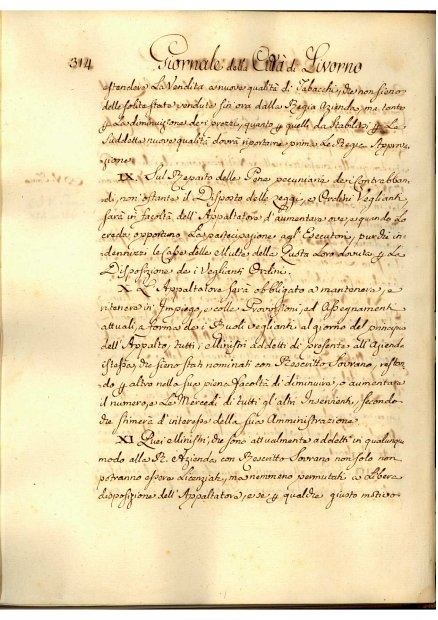 314 Giornale della Città di Livorno
estendere la Vendita a nuove qualità di Tabacchi, che non sieno
delle solite state vendute sin ora dalla Regia Azienda, ma tanto
p la diminuzione dei prezzi, quanto p quelli da stabilirsi p le
suddette nuove qualità dovrà riportarne prima la Regia Approva-
zione.
IX. Sul Reparto delle Pene pecuniarie dei Contrabban-
di, non 'ostante il Disposto delle Leggi, e Ordini Veglianti,
sarà in facoltà dell'Appaltatore d'aumentare ove, e quando lo
creda opportuno la partecipazione agl'Esecutori, purchè in-
dennizzi le Casse delle Multe della Quota loro dovuta p la
Disposizione dei Veglianti Ordini.
X. L'Appaltatore sarà obbligato a mantenere, e
ritenere in Impiego, e colle Provvisioni, ed Assegnamenti
attuali, a forma dei Ruoli veglianti al giorno del principio
dell'Appalto, tutti i Ministri addetti di presente all'Azienda
istessa, che sieno stati nominati con Rescritto Sovrano, restan-
do p altro nella sua piena facoltà di diminuire, o aumentare
il numero, e la Mercede di tutti gl'altri Inservienti, secondo
che stimerà d'interesse della sua Amministrazione.
XI. Quei Ministri, che sono attualmente addetti in qualunque
modo alla R. Azienda con Rescritto Sovrano non solo non
potranno essere Licenziati, ma nemmeno permutati a Libera
disposizione dell'Appaltatore, e se p qualche giusto motivo